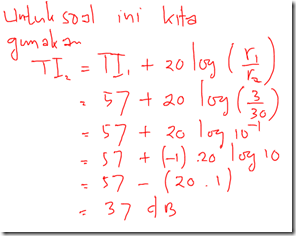 Untuk soal ini kita
gunakan
TI₂ = TI₁ + 20 log (r₁/r₂)
= 57 + 20 log (3/30)
= 57 + 20 log 10⁻¹
= 57 + (-1) . 20 log 10
= 57 - (20 . 1)
= 37 dB